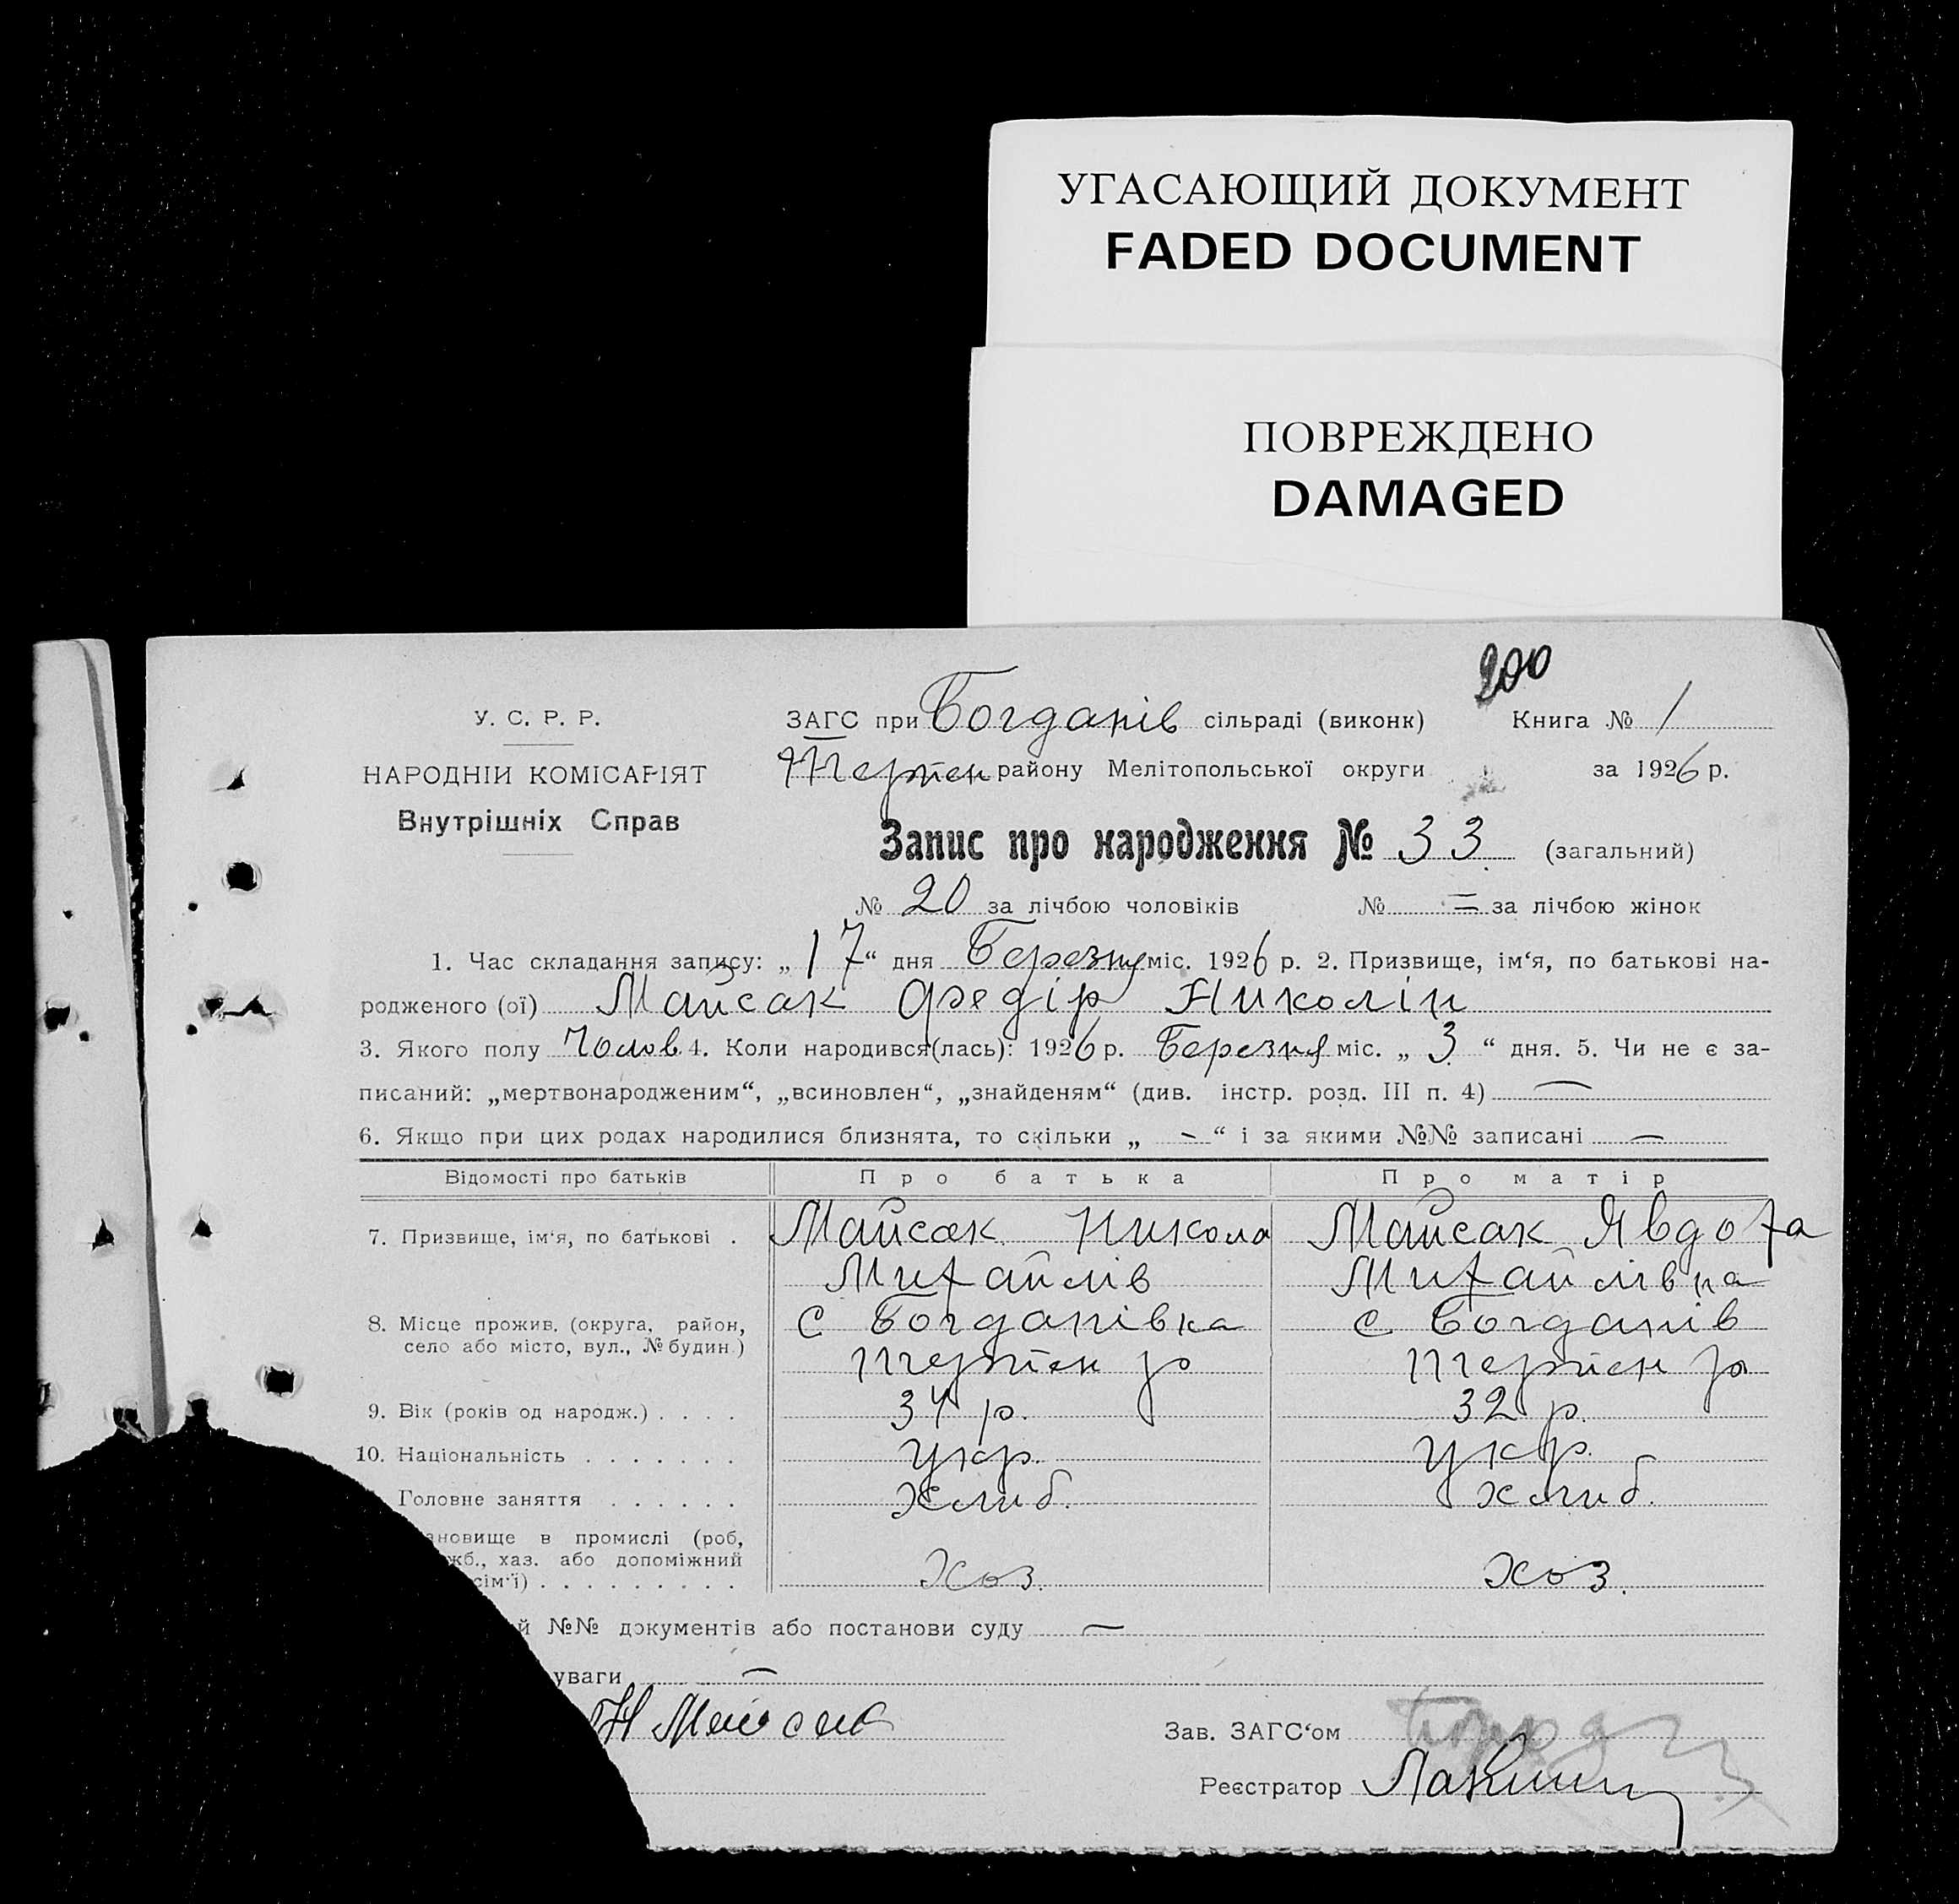 УГАСАЮЩИЙ ДОКУМЕНТ
FADED DOCUMENT
ПОВРЕЖДЕНО
DAMAGED
200
У. С. Р. Р.
НАРОДНІЙ КОМІСАРІЯТ
Внутрішніх Справ
ЗАГС при Богданів сільраді (виконк) Книга № 1
Терпен району Мелітопольської округи за 1926 р.
Запис про народження № 33 (загальний)
№ 20 за лічбою чоловіків № = за лічбою жінок
1. Час складання запису: „17“ дня Березня міс. 1926 р. 2. Призвище, ім‘я, по батькові на-
родженого (ої) Майсак Федір Николін
3. Якого полу Чолов. 4. Коли народився(лась): 1926 р. Березня міс. „3“ дня. 5. Чи не є за-
писаний: „мертвонародженим“, „всиновлен“, „знайденям“ (див. інстр. розд. III п. 4) —
6. Якщо при цих родах народилися близнята, то скільки „ - “ і за якими №№ записані —
Відомості про батьків Про батька Про матір
7. Призвище, ім‘я, по батькові . Майсак Никола Майсак Явдоха
Михайлів Михайлівна
8. Місце прожив. (округа, район, с Богданівка с Богданів
село або місто, вул., № будин.) Терпен р Терпен р
9. Вік (років од народж.) . . . . 34 р. 32 р.
10. Національність . . . . . . . укр. укр.
Головне заняття . . . . . . Хлиб. хлиб.
ановище в промислі (роб,
жб., хаз. або допоміжний
сім‘ї) . . . . . . . . . Хоз. Хоз.
й №№ документів або постанови суду —
уваги —
Н Майсак Зав. ЗАГС‘ом
Реєстратор